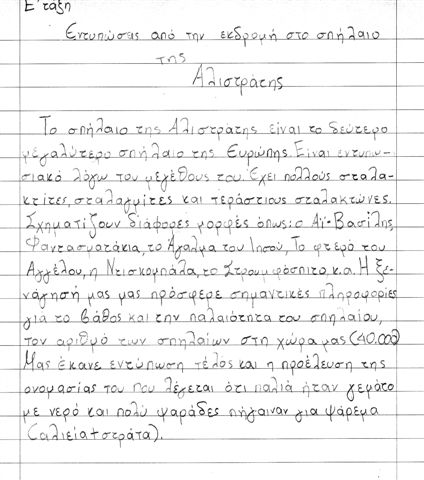 Ε' τάξη
Εντυπώσεις από την εκδρομή στο σπήλαιο
της
Αλιστράτης
Το σπήλαιο της Αλιστράτης είναι το δεύτερο
μεγαλύτερο σπήλαιο της Ευρώπης. Είναι εντυπω-
σιακό λόγω του μεγέθους του. Έχει πολλούς σταλα-
κτίτες, σταλαγμίτες και τεράστιους σταλακτώνες.
Σχηματίζουν διάφορες μορφές όπως: ο Αϊ-Βασίλης,
Φαντασματάκια, το Άγαλμα του Ιησού, Το φτερό του
Αγγέλου, η Ντισκομπάλα, το Στρουμφόσπιτο κ.α. Η ξε-
νάγησή μας μας πρόσφερε σημαντικές πληροφορίες
για το βάθος και την παλαιότητα του σπηλαίου,
τον αριθμό των σπηλαίων στη χώρα μας (10.000)
Μας έκανε εντύπωση τέλος και η προέλευση της
ονομασίας του που λέγεται ότι παλιά ήταν γεμάτο
με νερό και πολύ ψαράδες πήγαιναν για ψάρεμα
(αλιεία + στράτα).